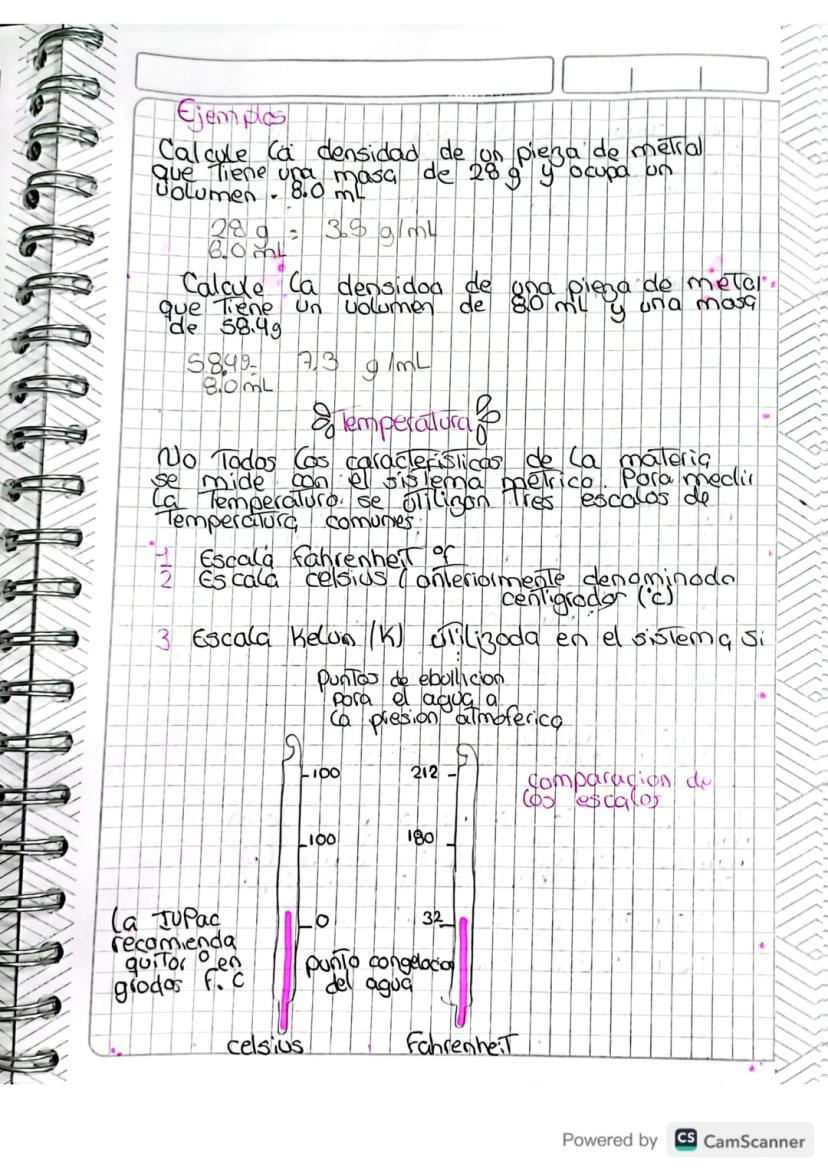 Ejemplos
Calcule la densidad de un pieza de metal
que tiene una masa de 28 g y ocupa un
volumen . 8.0 mL
28 g = 3.8 g/mL
8.0 mL
Calcule la densidad de una pieza de metal
que tiene un volumen de 8.0 ml y una masa
de 58.4g
58.49= 7.3 g/mL
8.0 mL
Temperatura
No Todas las caracteristicas de la materia
se mide con el sistema metrico. Para medir
la Temperatura se utilizan Tres escalas de
Temperatura comunes.
1 Escala fahrenheit °f
2 Escala celsius (anteriormente denominada
centigrados (°c)
3 Escala Kelvin (K) utilizada en el sistema si
puntos de ebullicion
para el agua a
la presion atmoferica
100 212
comparacion de
las escalas
100 180
0 32
la IUPac
recomienda
quitar ° en
grados F. C
punto congelacion
del agua
celsius fahrenheit
Powered by CS CamScanner